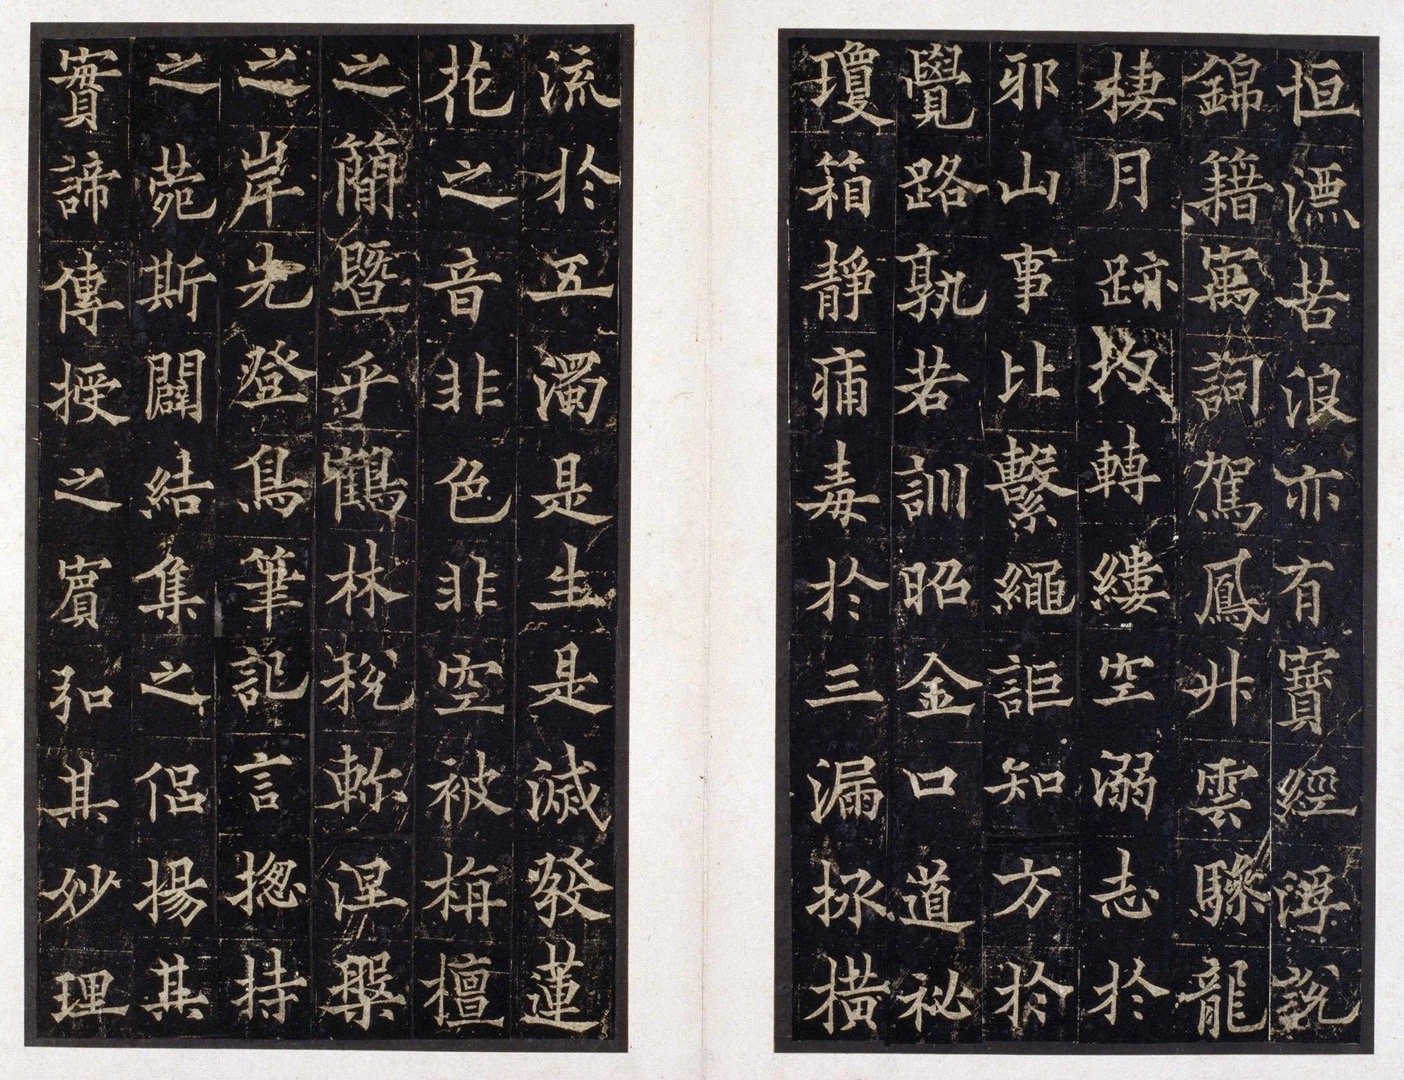 恒漂苦浪亦有寶經浮說
錦籍萬詞駕鳳升雲驂龍
棲月跡均轉縷空溺志於
邪山事比繫繩詎知方於
覺路孰若訓昭金口道祕
瓊箱靜痛毒於三漏拯橫
流於五濁是生是滅發蓮
花之音非色非空被栴檀
之簡暨乎鶴林稅斬涅槃
之岸先登鳥筆記言揔持
之菀斯闢結集之侶揚其
實諦傳授之賓弘其妙理